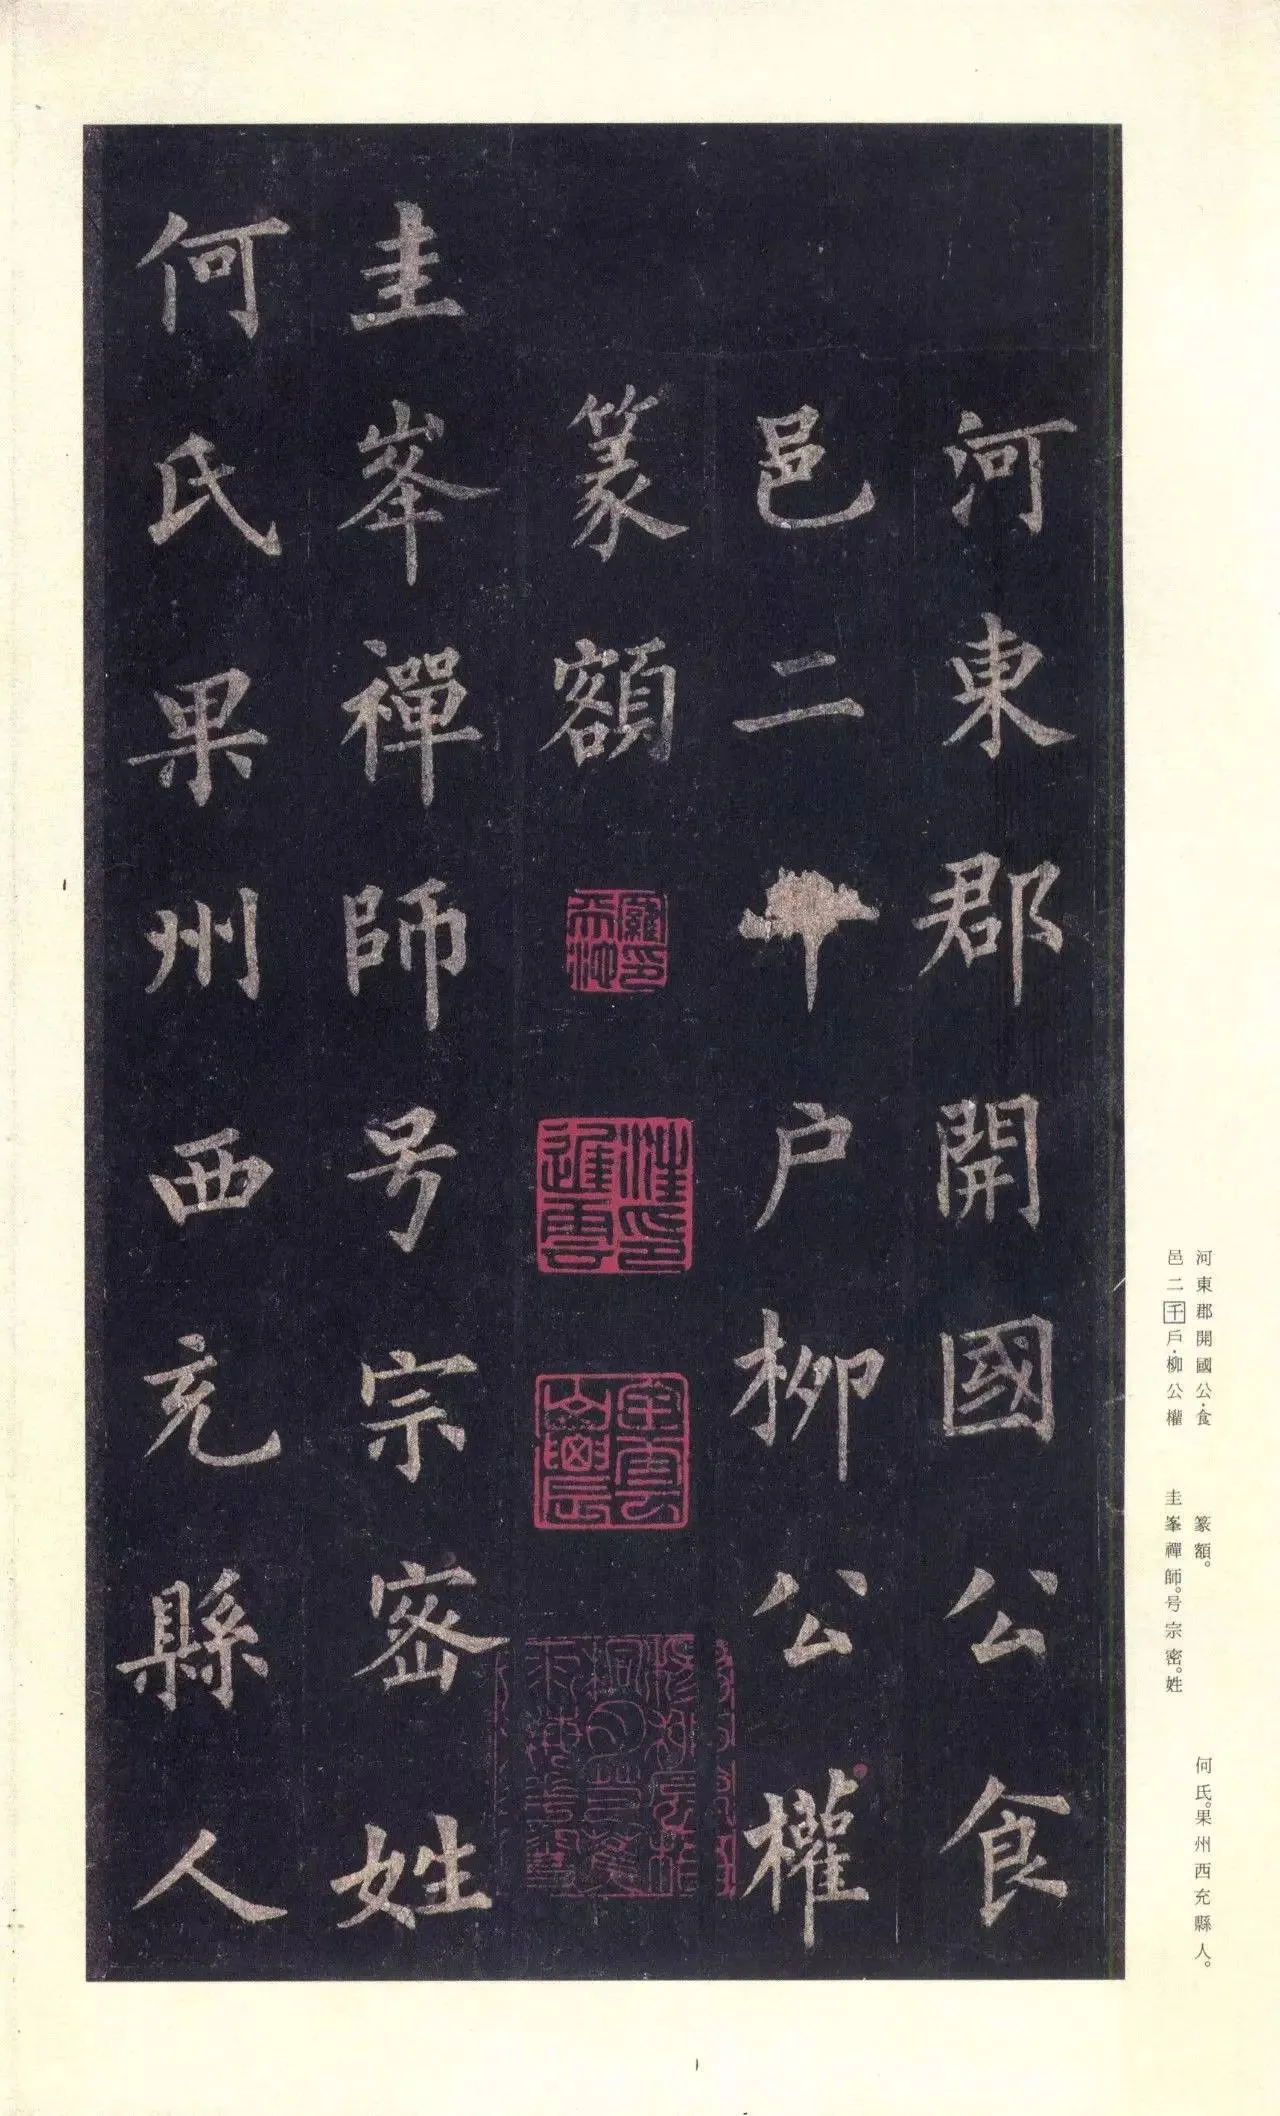 河東郡開國公食
邑二千户柳公權
篆額
圭峯禪師号宗密姓
何氏果州西充縣人
羅印天池
河東郡開國公·食
邑二千戶·柳公權
篆額。
圭峯禪師。号宗密。姓
何氏。果州西充縣人。